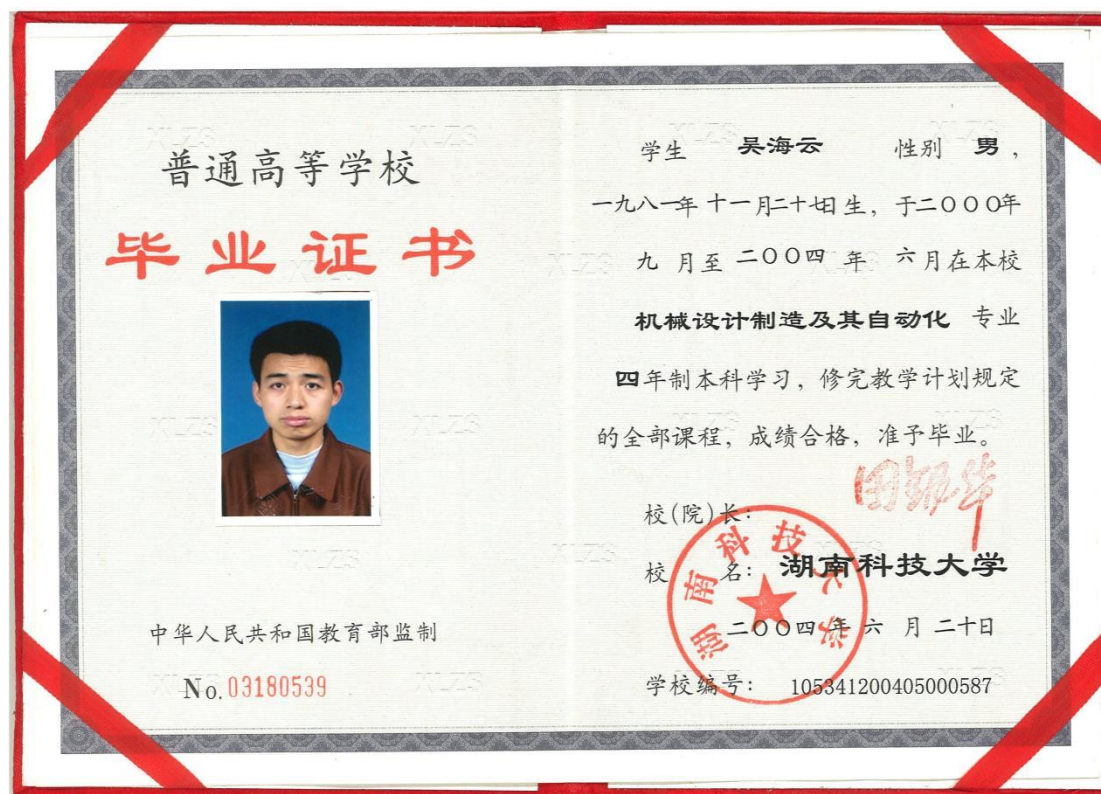 普通高等学校
毕业证书
中华人民共和国教育部监制
No.03180539
学生 吴海云 性别 男，
一九八一年十一月二十七日生，于二〇〇〇年
九 月至 二〇〇四 年 六月在本校
机械设计制造及其自动化 专业
四年制本科学习，修完教学计划规定
的全部课程，成绩合格，准予毕业。
校(院)长：
校 名：湖南科技大学
湖南科技大学
二〇〇四年 六 月 二十日
学校编号：105341200405000587
XLZS